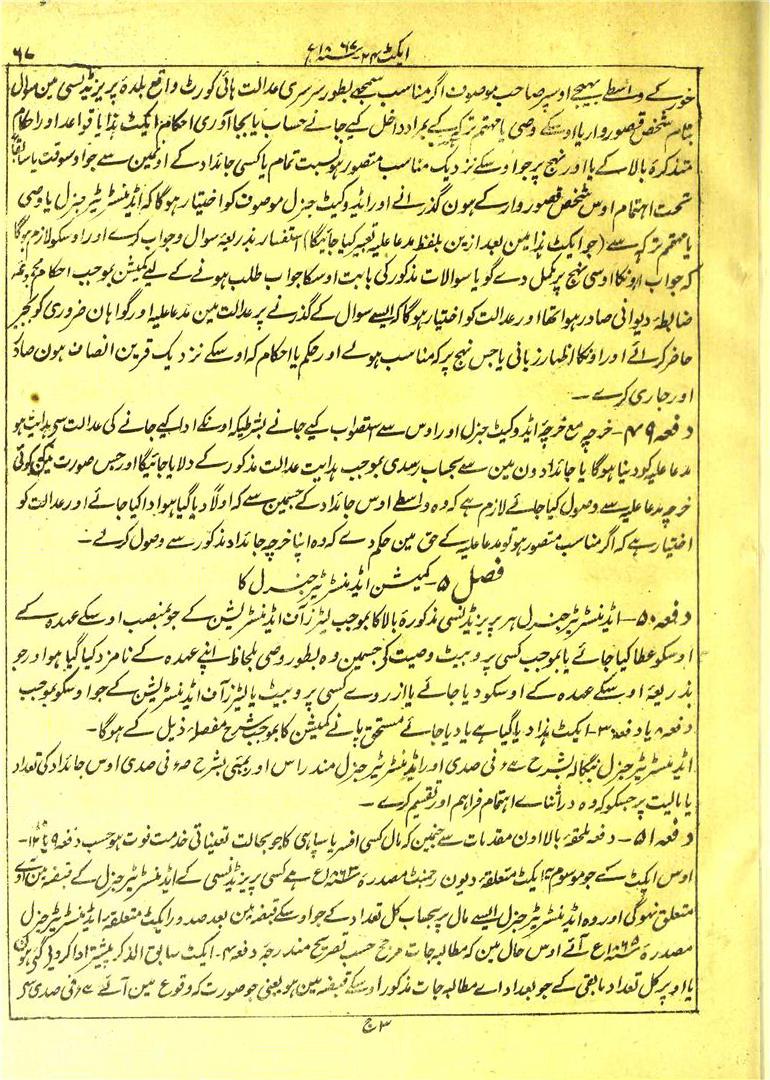 ایکٹ ۲۴ سنہ ۱۸۶۷ع
۶۷
خور کے واسطے بھیجے اوسپر صاحب موصوف اگر مناسب سمجھے بطور سرسری عدالت ہائی کورٹ واقع بلدۂ پریزیڈنسی مین سوال
بنام شخص قصوروار یا اوسکے وصی یا مہتمم ترکہ کے بمراد داخل کیے جانے حساب یا بجا آوری احکام ایکٹ ہذا یا قواعد اور احکام
متذکرۂ بالا کے یا اور نہج پر جو اوسکے نزدیک مناسب متصور ہو نسبت تمام یا کسی جائداد کے اونمین سے جو اوسوقت یا سابق
تحت اہتمام اوس شخص قصوروار کے ہون گذرانے اور ایڈوکیٹ جنرل موصوف کو اختیار ہوگا کہ ایڈمنسٹریٹر جنرل یا وصی
یا مہتمم ترکہ سے (جو ایکٹ ہذا مین بعد ازین بلفظ مدعا علیہ تعبیر کیا جائیگا) استفسار بذریعۂ سوال وجواب کرے اور اوسکو لازم ہوگا
کہ جواب اونکا اوسی نہج پر مکمل دے گویا سوالات مذکور کی بابت اوسکا جواب طلب ہونے کے لیے کمیشن بموجب احکام مجموعۂ
ضابطۂ دیوانی صادر ہوا تھا اور عدالت کو اختیار ہوگا کہ ایسے سوال کے گذرنے پر عدالت مین مدعا علیہ اور گواہان ضروری کو بجبر
حاضر کرائے اور اونکا اظہار زبانی یا جس نہج پر کہ مناسب ہو لے اور حکم یا احکام کہ اوسکے نزدیک قرین انصاف ہون صادر
اور جاری کرے ۔
دفعہ ۴۹ ۔ خرچہ مع خرچۂ ایڈوکیٹ جنرل اور اوس سے استصواب کیے جانے بشرطیکہ اونکے ادا کیے جانے کی عدالت سے ہدایت ہو
مدعا علیہ کو دینا ہوگا یا جائدادون مین سے بحساب رسدی بموجب ہدایت عدالت مذکور کے دلایا جائیگا اور جس صورت مین کوئی
خرچہ مدعا علیہ سے وصول کیا جائے لازم ہے کہ وہ واسطے اوس جائداد کے جسمین سے کہ اولاً دیا گیا ہو ادا کیا جائے اور عدالت کو
اختیار ہے کہ اگر مناسب متصور ہو تو مدعا علیہ کے حق مین حکم دے کہ وہ اپنا خرچہ جائداد مذکور سے وصول کرلے ۔
فصل ۵ ۔ کمیشن ایڈمنسٹریٹر جنرل کا
دفعہ ۵۰ ۔ ایڈمنسٹریٹر جنرل ہر پریزیڈنسی مذکورۂ بالا کا بموجب لیٹرز آف ایڈمنسٹریشن کے جو بمنصب اوسکے عہدہ کے
اوسکو عطا کیا جائے یا بموجب کسی پروبیٹ وصیت کے جسمین وہ بطور وصی بلحاظ اپنے عہدہ کے نامزد کیا گیا ہو اور جو
بذریعۂ اوسکے عہدہ کے اوسکو دیا جائے یا ازروے کسی پروبیٹ یا لیٹرز آف ایڈمنسٹریشن کے جو اوسکو بموجب
دفعہ ۸ یا دفعہ ۳۰ ۔ ایکٹ ہذا دیا گیا ہے یا دیا جائے مستحق پانے کمیشن کا بموجب شرح مفصلۂ ذیل کے ہوگا ۔
ایڈمنسٹریٹر جنرل بنگالہ بشرح فی صدی اور ایڈمنسٹریٹر جنرل مندراس اور بمبئی بشرح فی صدی اوس جائداد کی تعداد
یا مالیت پر جسکو کہ وہ در اثناے اہتمام فراہم اور تقسیم کرے ۔
دفعہ ۵۱ ۔ دفعہ ملحقۂ بالا اون مقدمات سے جنمین کہ مال کسی افسر یا سپاہی کا جو بحالت تعیناتی خدمت فوت ہو حسب دفعہ ۹ یا ۱۲ ۔
اوس ایکٹ کے جو موسوم بہ ایکٹ متعلقۂ دیون رجمنٹ مصدرۂ سنہ ۱۸۶۳ع ہے کسی پریزیڈنسی کے ایڈمنسٹریٹر جنرل کے قبضہ مین آوے
متعلق نہوگی اور وہ ایڈمنسٹریٹر جنرل ایسے مال پر بحساب کل تعداد کے جو اوسکے قبضہ مین بعد صدور ایکٹ متعلقۂ ایڈمنسٹریٹر جنرل
مصدرۂ سنہ ۱۸۶۵ع آئے اوس حال مین کہ مطالبہ جات مرجح حسب تصریح مندرجۂ دفعہ ۴ ۔ ایکٹ سابق الذکر پیشتر ادا کردی گئی ہون
یا اوپر کل تعداد مابقی کے جو بعد اداے مطالبہ جات مذکور اوسکے قبضہ مین ہو یعنی جو صورت کہ وقوع مین آئے فی صدی سے
۳ ج